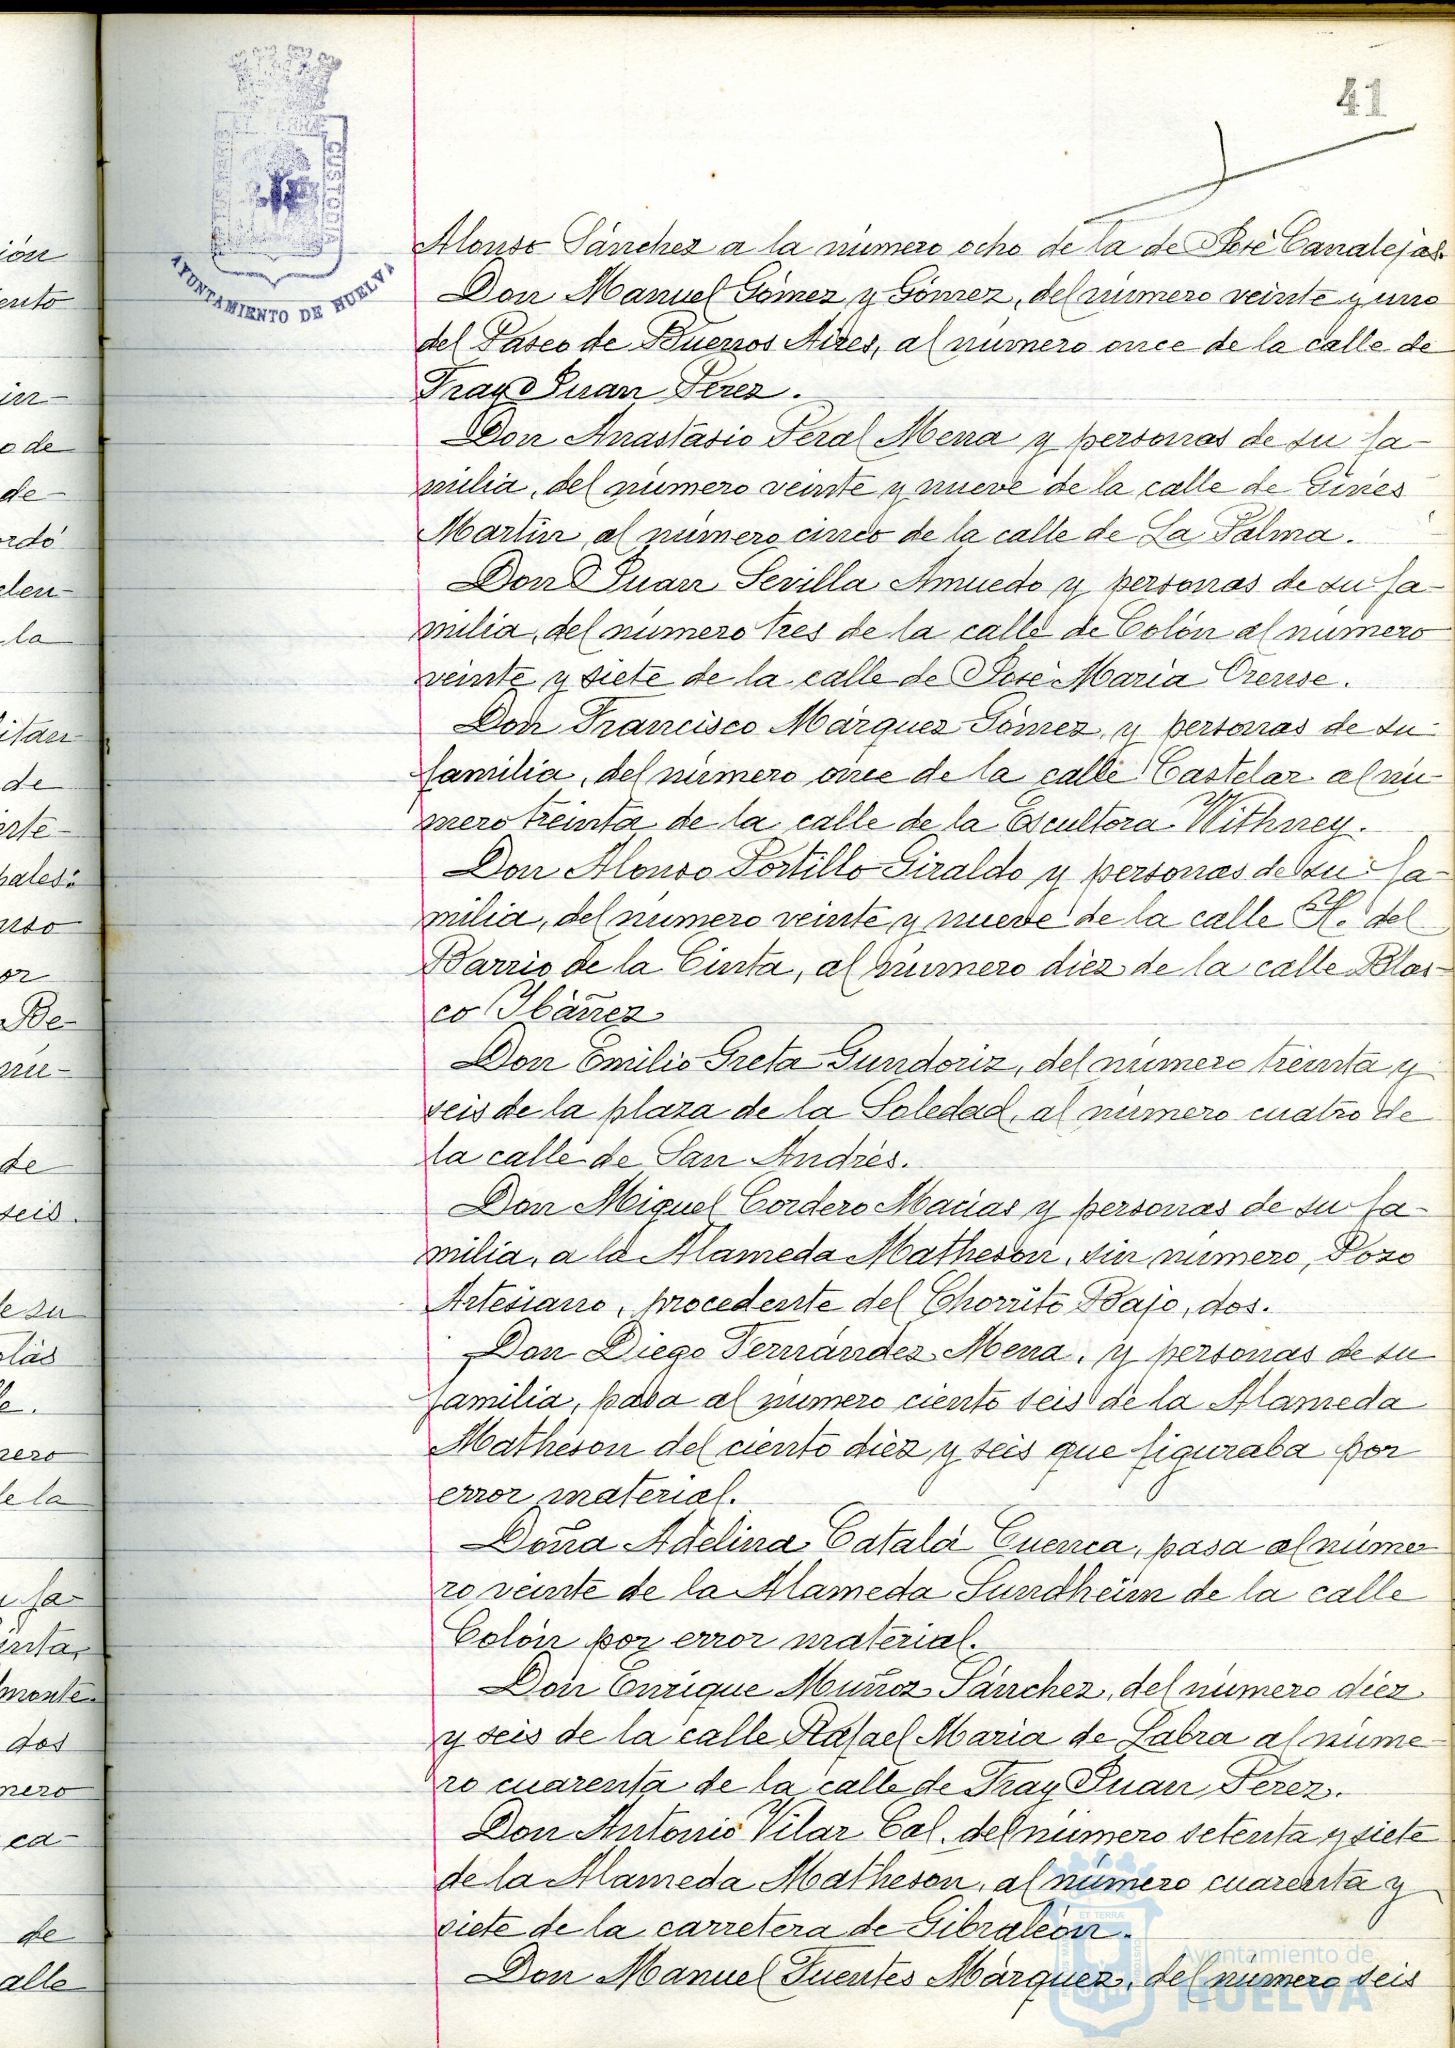 41
ET TERRÆ
CUSTODIA
AYUNTAMIENTO DE HUELVA
Alonso Sánchez a la número ocho de la de José Canalejas.
Don Manuel Gómez y Gómez, del número veinte y uno
del Paseo de Buenos Aires, al número once de la calle de
Fray Juan Pérez.
Don Anastasio Peral Mena y personas de su fa-
milia, del número veinte y nueve de la calle de Ginés
Martín, al número cinco de la calle de La Palma.
Don Juan Sevilla Amuedo y personas de su fa-
milia, del número tres de la calle de Colón al número
veinte y siete de la calle de José María Orense.
Don Francisco Márquez Gómez, y personas de su
familia, del número once de la calle Castelar al nú-
mero treinta de la calle de la Escultora Withney.
Don Alonso Portillo Giraldo y personas de su fa-
milia, del número veinte y nueve de la calle H. del
Barrio de la Cinta, al número diez de la calle Blas-
co Ibáñez
Don Emilio Greta Gundoriz, del número treinta y
seis de la plaza de la Soledad, al número cuatro de
la calle de San Andrés.
Don Miguel Cordero Macías y personas de su fa-
milia, a la Alameda Matheson, sin número, Pozo
Artesiano, procedente del Chorrito Bajo, dos.
Don Diego Fernández Mena, y personas de su
familia, pasa al número ciento seis de la Alameda
Matheson del ciento diez y seis que figuraba por
error material.
Doña Adelina Catalá Cuenca, pasa al núme-
ro veinte de la Alameda Sundheim de la calle
Colón por error material.
Don Enrique Muñoz Sánchez, del número diez
y seis de la calle Rafael María de Labra al núme-
ro cuarenta de la calle de Fray Juan Pérez.
Don Antonio Vilar Cal, del número setenta y siete
de la Alameda Matheson, al número cuarenta y
siete de la carretera de Gibraleón.
Don Manuel Fuentes Márquez, del número seis
Ayuntamiento de
HUELVA
ión
ento
in-
o de
de
rdó
den-
la
itan
de
erte-
pales:
nso
or
Be-
nú-
de
seis.
de su
olás
le.
nero
de la
u fa-
inta,
monte.
dos
nero
ca-
de
alle